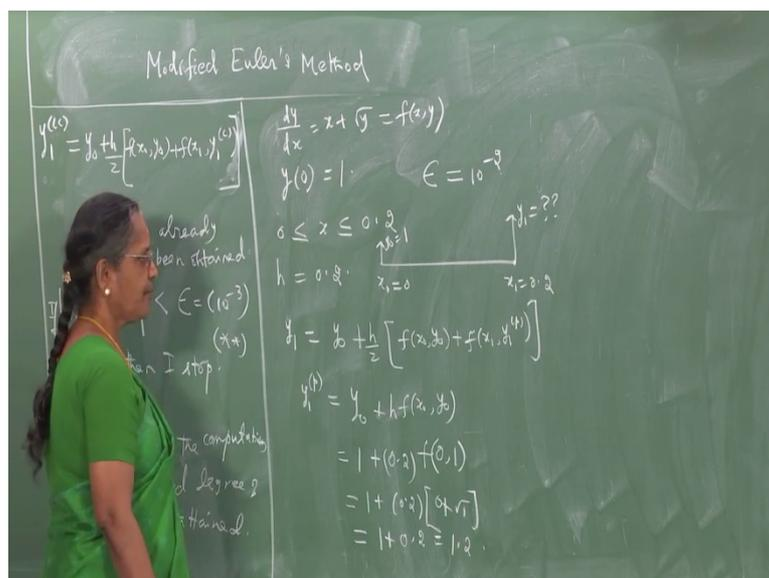 Modified Euler's Method
y₁⁽ᶜᶜ⁾ = y₀ + h/2 [f(x₀, y₀) + f(x₁, y₁⁽ᶜ⁾)]
already
been obtained
If
< ϵ = (10⁻³)
(**)
then I stop.
the computation
degree
attained.
dy/dx = x + √y = f(x, y)
y(0) = 1. ϵ = 10⁻²
0 ≤ x ≤ 0.2
h = 0.2.
y₀=1
y₁ = ??
x₀=0
x₁=0.2
y₁ = y₀ + h/2 [f(x₀, y₀) + f(x₁, y₁⁽ᵖ⁾)]
y₁⁽ᵖ⁾ = y₀ + h f(x₀, y₀)
= 1 + (0.2) f(0, 1)
= 1 + (0.2) [0 + √1]
= 1 + 0.2 = 1.2.